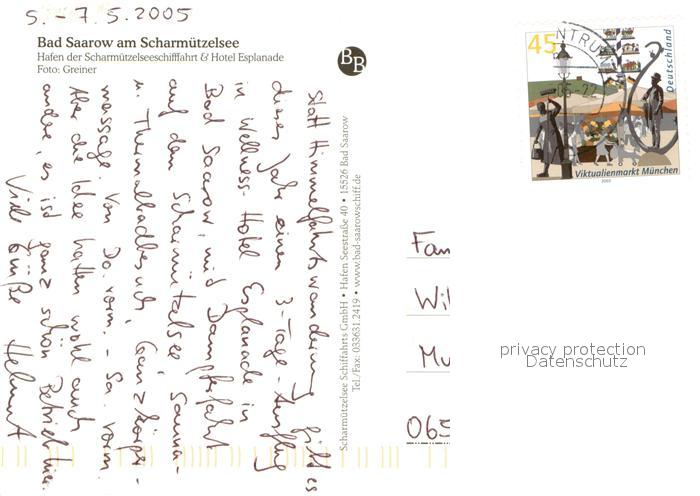 5. - 7.5.2005
Bad Saarow am Scharmützelsee
Hafen der Scharmützelseeschifffahrt & Hotel Esplanade
Foto: Greiner
BB
Statt Himmelfahrtswanderung gibt es
dieses Jahr einen 3-Tage-Ausflug
in Wellness-Hotel Esplanade in
Bad Saarow, mit Dampferfahrt
auf den Scharmützelsee, Sauna-
u. Thermalbadbesuch, Ganzkörper-
massage. Von Do. vorm. - Sa. vorm.
Aber die Idee hatten wohl auch
andere, es ist ganz schön Betrieb hier.
Viele Grüße Helmut
Scharmützelsee Schiffahrts GmbH • Hafen Seestraße 40 • 15526 Bad Saarow
Tel./Fax: 033631.2419 • www.bad-saarowschiff.de
45
Deutschland
NTRUM
Viktualienmarkt München
2003
Fam
Wil
Mu
065
privacy protection
Datenschutz